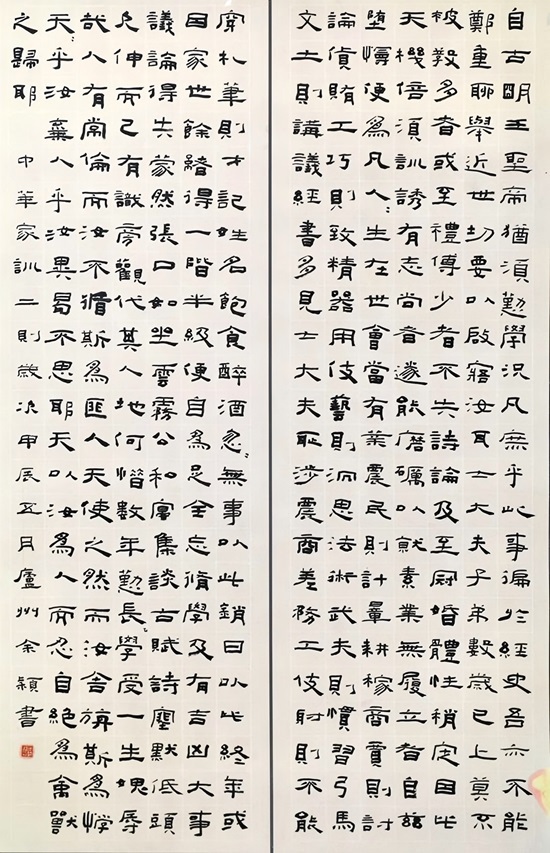 自古明王聖帝猶須勤學況凡庶乎此事徧於經史吾亦不能
鄭重聊舉近世切要以啟寤汝耳士大夫子弟數歲已上莫不
被教多者或至禮傳少者不失詩論及至冠婚體性稍定因此
天機倍須訓誘有志尚者遂能磨礪以就素業無履立者自茲
墮慢便為凡人〻生在世會當有業農民則計量耕稼商賈則討
論貨賄工巧則致精器用伎藝則沉思法術武夫則慣習弓馬
文士則講議經書多見士大夫恥涉農商差務工伎射則不能
穿札筆則才記姓名飽食醉酒忽〻無事以此銷日以此終年或
因家世餘緒得一階半級便自為足全忘脩學及有吉凶大事
議論得失蒙然張口如坐雲霧公私宴集談古賦詩塞默低頭
欠伸而已有識旁觀代其入地何惜數年勤長〻學受一生愧辱
哉人有常倫而汝不循斯為匪人天使之然而汝舍旃斯為悖
天〻乎汝棄人乎汝異曷不思耶天以汝為人而忍自絕為禽獸
之歸耶 中華家訓二則歲次甲辰五月廬州余穎書